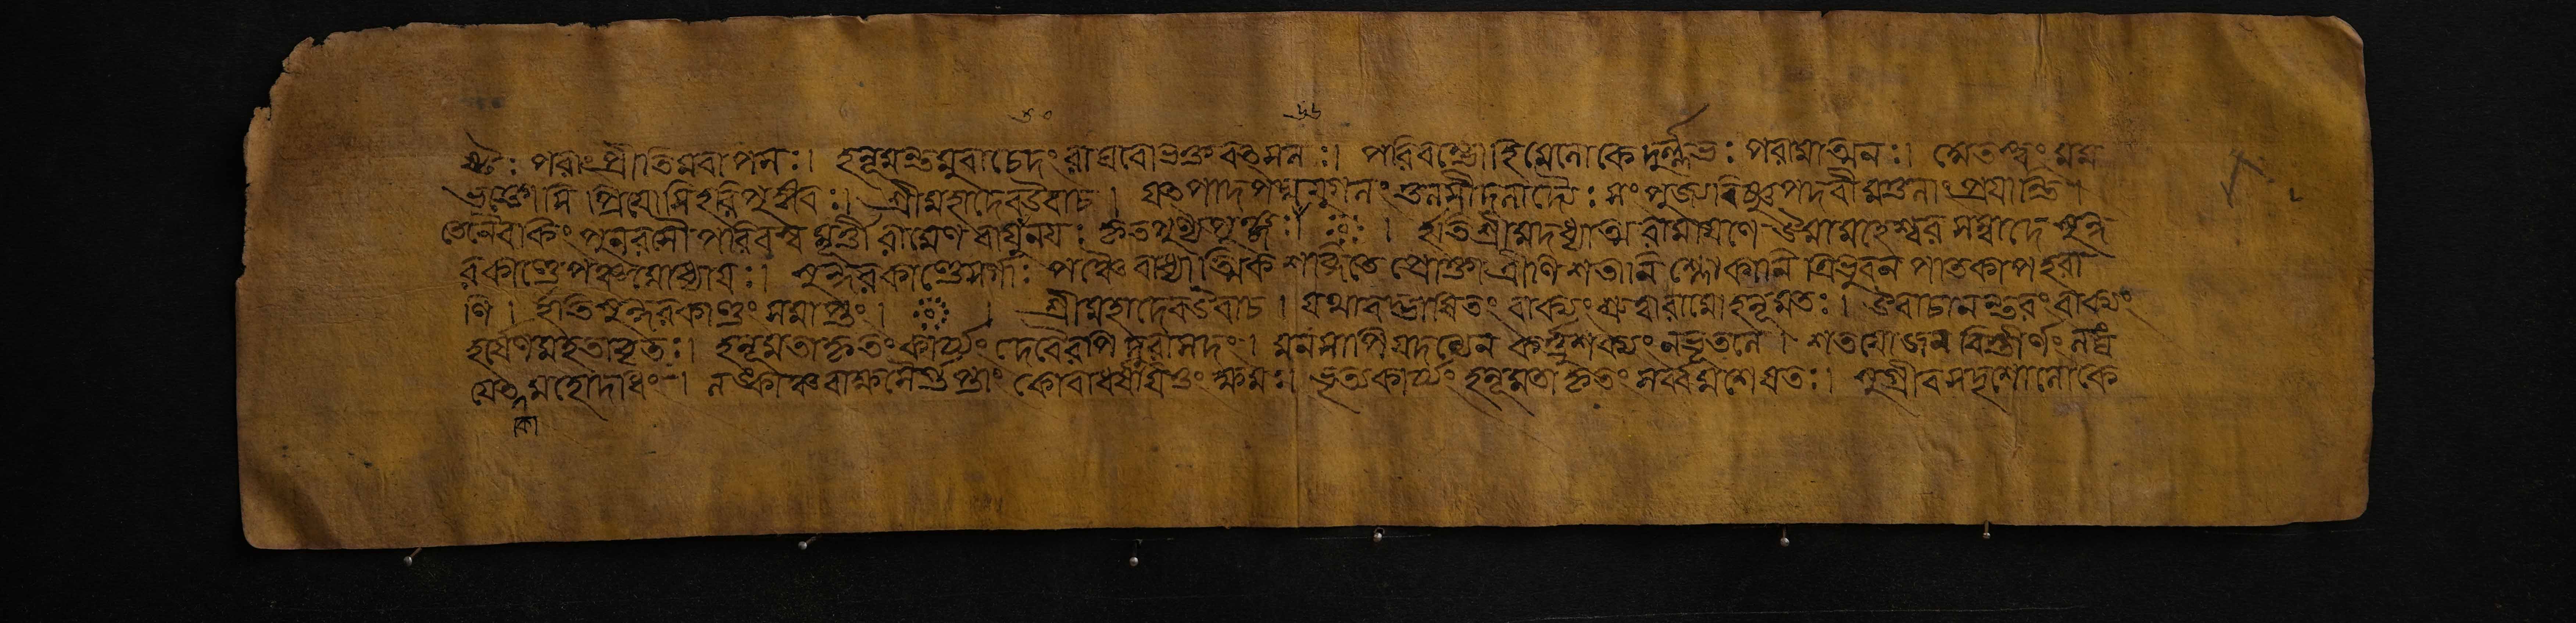 ষ্ঠৈঃ পরাং প্রীতিমবাপনঃ। হনূমন্তমুবাচেদং রাঘবো ভক্তবৎসলঃ। পরিরম্ভো হি মে লোকে দুর্ল্লভঃ পরমাত্মনঃ। অতস্ত্বং মম
ভক্তোসি প্রিয়োসি হরিপুঙ্গবঃ। শ্রীমহাদেব উবাচ। যৎপাদপদ্মযুগলং তুলসীদলাদ্যৈঃ সংপূজ্য বিষ্ণুপদবীমতুলাং প্রযান্তি।
তেনৈব কিং পুনরসৌ পরিরব্ধমূর্ত্তী রামেণ বায়ুতনয়ঃ কৃতপুণ্যপুঞ্জঃ। ইতি শ্রীমদধ্যাত্মরামায়ণে ঊমামহেশ্বর সম্বাদে সুন্দ
রকাণ্ডে পঞ্চমোধ্যায়ঃ। সুন্দরকাণ্ডে সর্গাঃ পঞ্চৈবাধ্যাত্মিক শব্দিতে প্রোক্তা ত্রীণি শতানি শ্লোকানি ত্রিভুবন পাতকাপহরা
ণি। ইতি সুন্দরকাণ্ডং সমাপ্তং। শ্রীমহাদেব উবাচ। যথাবদ্ভাষিতং বাক্যং শ্রুত্বা রামো হনূমতঃ। উবাচানন্তরং বাক্যং
হর্ষেণ মহতাবৃতঃ। হনূমতা কৃতং কার্য্যং দেবৈরপি দুরাসদং। মনসাপি যদন্যেন কর্ত্তুং শক্যং ন ভূতলে। শতযোজন বিস্তীর্ণং লঙ্ঘ
যেৎ মহোদধিং। লঙ্কাঞ্চ রাক্ষসৈর্গুপ্তাং কো বা ধর্ষয়িতুং ক্ষমঃ। ভৃত্যকার্য্যং হনূমতা কৃতং সর্ব্বমশেষতঃ। সুগ্রীবসদৃশো লোকে